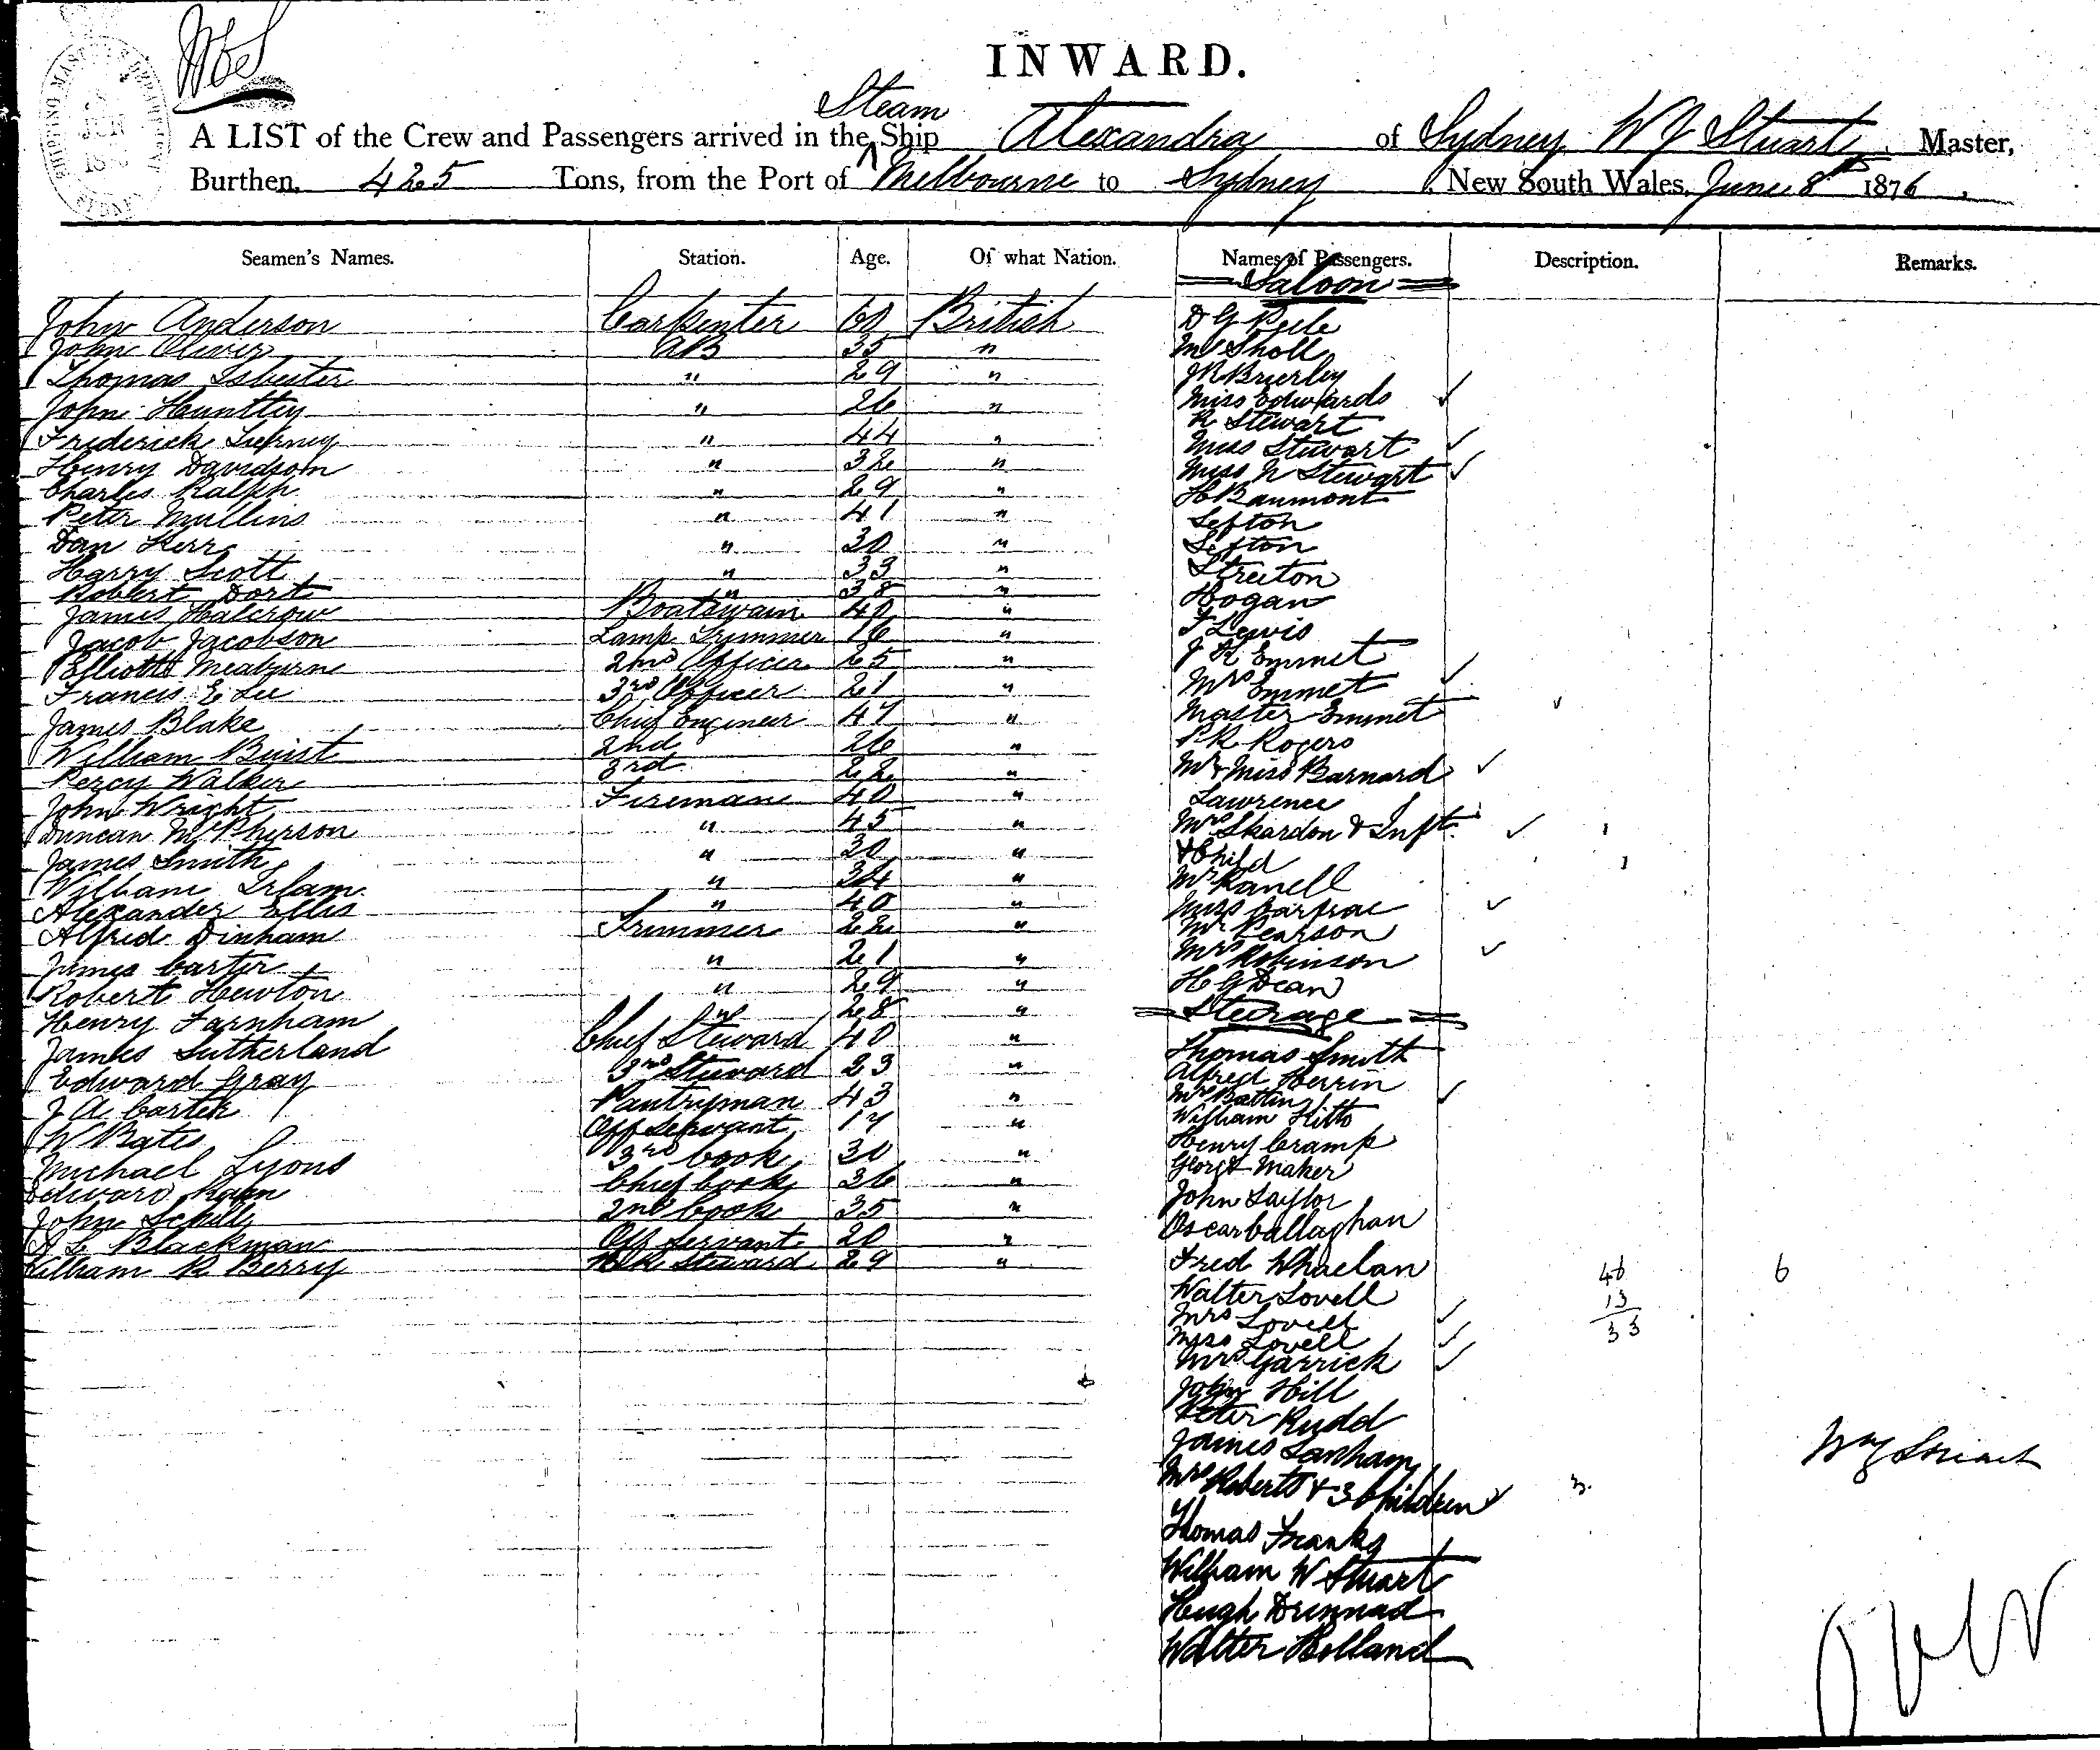 WGS
SHIPPING MASTER'S DEPARTMENT
SYDNEY
INWARD.
Steam
A LIST of the Crew and Passengers arrived in the ^ Ship Alexandra of Sydney W G Stuart, Master,
Burthen, 425 Tons, from the Port of Melbourne to Sydney, New South Wales, June 8th 1876.
Seamen's Names. Station. Age. Of what Nation. Names of Passengers. Description. Remarks.
Saloon
John Anderson Carpenter 60 British D G Peele
John Oliver AB 35 " Mr Sholl
Thomas Isbister " 29 " J R Brierley
John Huntley " 26 " Miss Edwards ✓
R Stewart
Frederick Tierney " 44 " Miss Stewart ✓
Henry Davidson " 32 " Miss N Stewart ✓
Charles Ralph " 29 " H Baumont
Peter Mullins " 41 " Sefton
Dan Kerr " 30 " Sefton
Harry Scott " 33 " Streeton
Robert Dort " 38 " Hogan
James Halcrow Boatswain 40 " F Lewis
Jacob Jacobson Lamp Trimmer 16 "
Elliott Meaburn 2nd Officer 25 " J K Emmet
Francis E Lee 3rd Officer 21 " Mrs Emmet ✓
James Blake Chief Engineer 47 " Master Emmet ✓
William Buist 2nd 26 " P R Rogers
Percy Walker 3rd 22 " Mr & Miss Barnard ✓
John Wright Fireman 40 " Lawrence
Duncan McPherson " 45 " Mrs Skardon & Inft ✓ 1
James Smith " 30 " & Child 1
William Irlam " 34 " Mr Ranell
Alexander Ellis " 40 " Miss Carfrae ✓
Alfred Dinham Trimmer 22 " Mr Pearson
James Carter " 21 " Mrs Robinson ✓
Robert Hewton " 29 " H G Dean
Henry Farnham " 28 " Steerage
James Sutherland Chief Steward 40 " Thomas Smith
Edward Gray 3rd Steward 23 " Alfred Herrin
J A Carter Pantryman 43 " Mrs Battin ✓
W Bates Off Servant 17 " William Hitto
Michael Lyons 3rd Cook 30 " Henry Cramp
Edward Chief Cook 36 " George Maher
John Schully 2nd Cook 35 " John Taylor
A L Blackman Off Servant 20 " Oscar Callaghan
William R Berry Steward 29 " Fred Whaelan 46 6
Walter Lovell 13
Mrs Lovell ✓ 33
Miss Lovell ✓
Mrs Garrick ✓
John Hill
Peter Rudd
James Lanham
Mrs Roberts & 3 Children ✓ 3.
Wm G Stuart
Thomas Franks
William W Stuart
Hugh Drennad
Walter Holland
Over